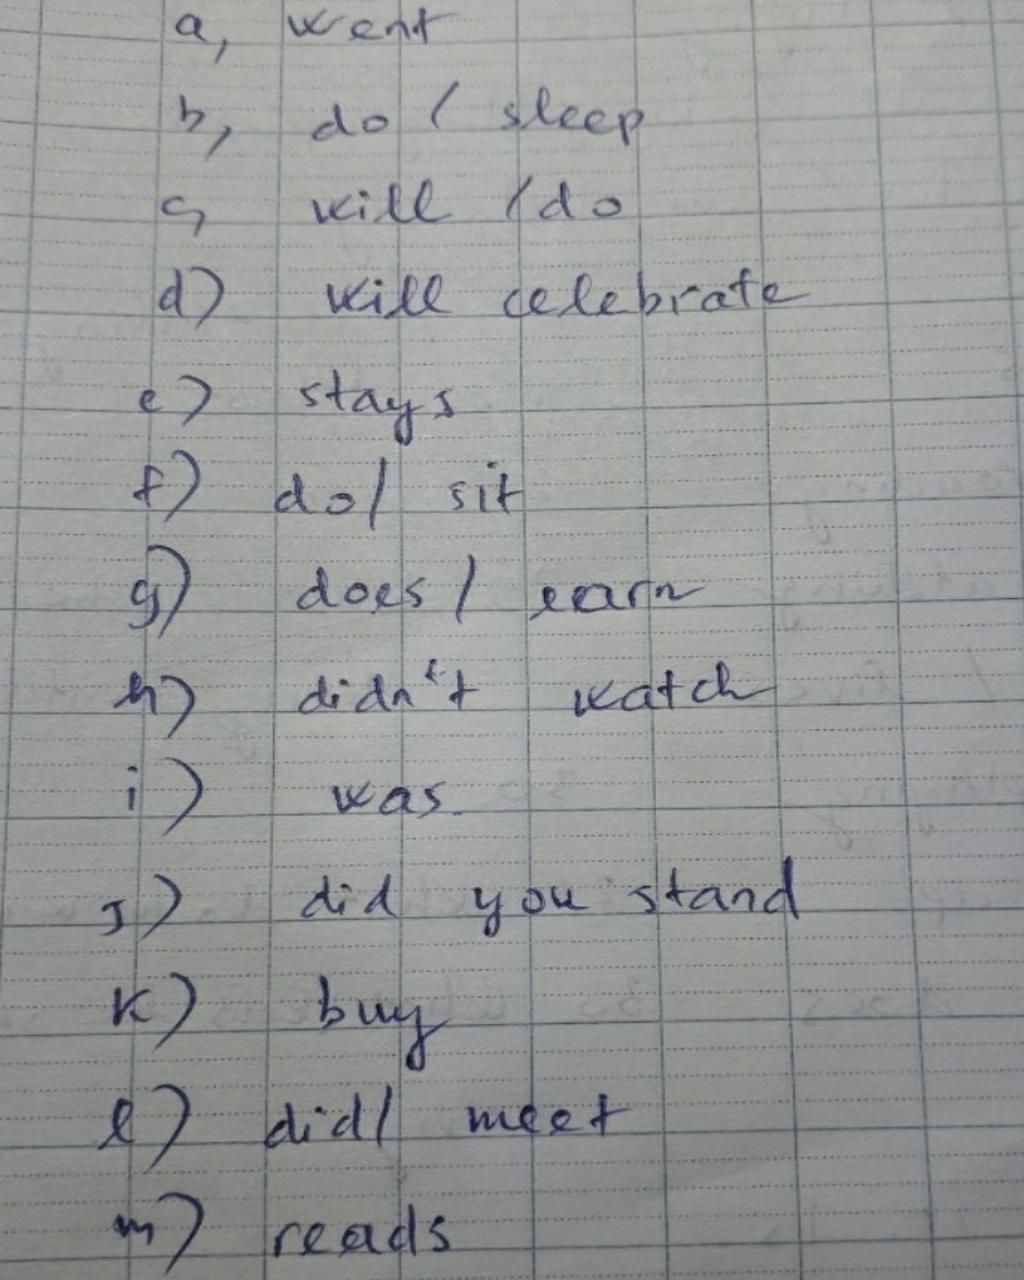 a, went
b, do / sleep
c, will / do
d) will celebrate
e) stays
f) do / sit
g) does / earn
h) didn't watch
i) was
j) did you stand
k) buy
l) did / meet
m) reads